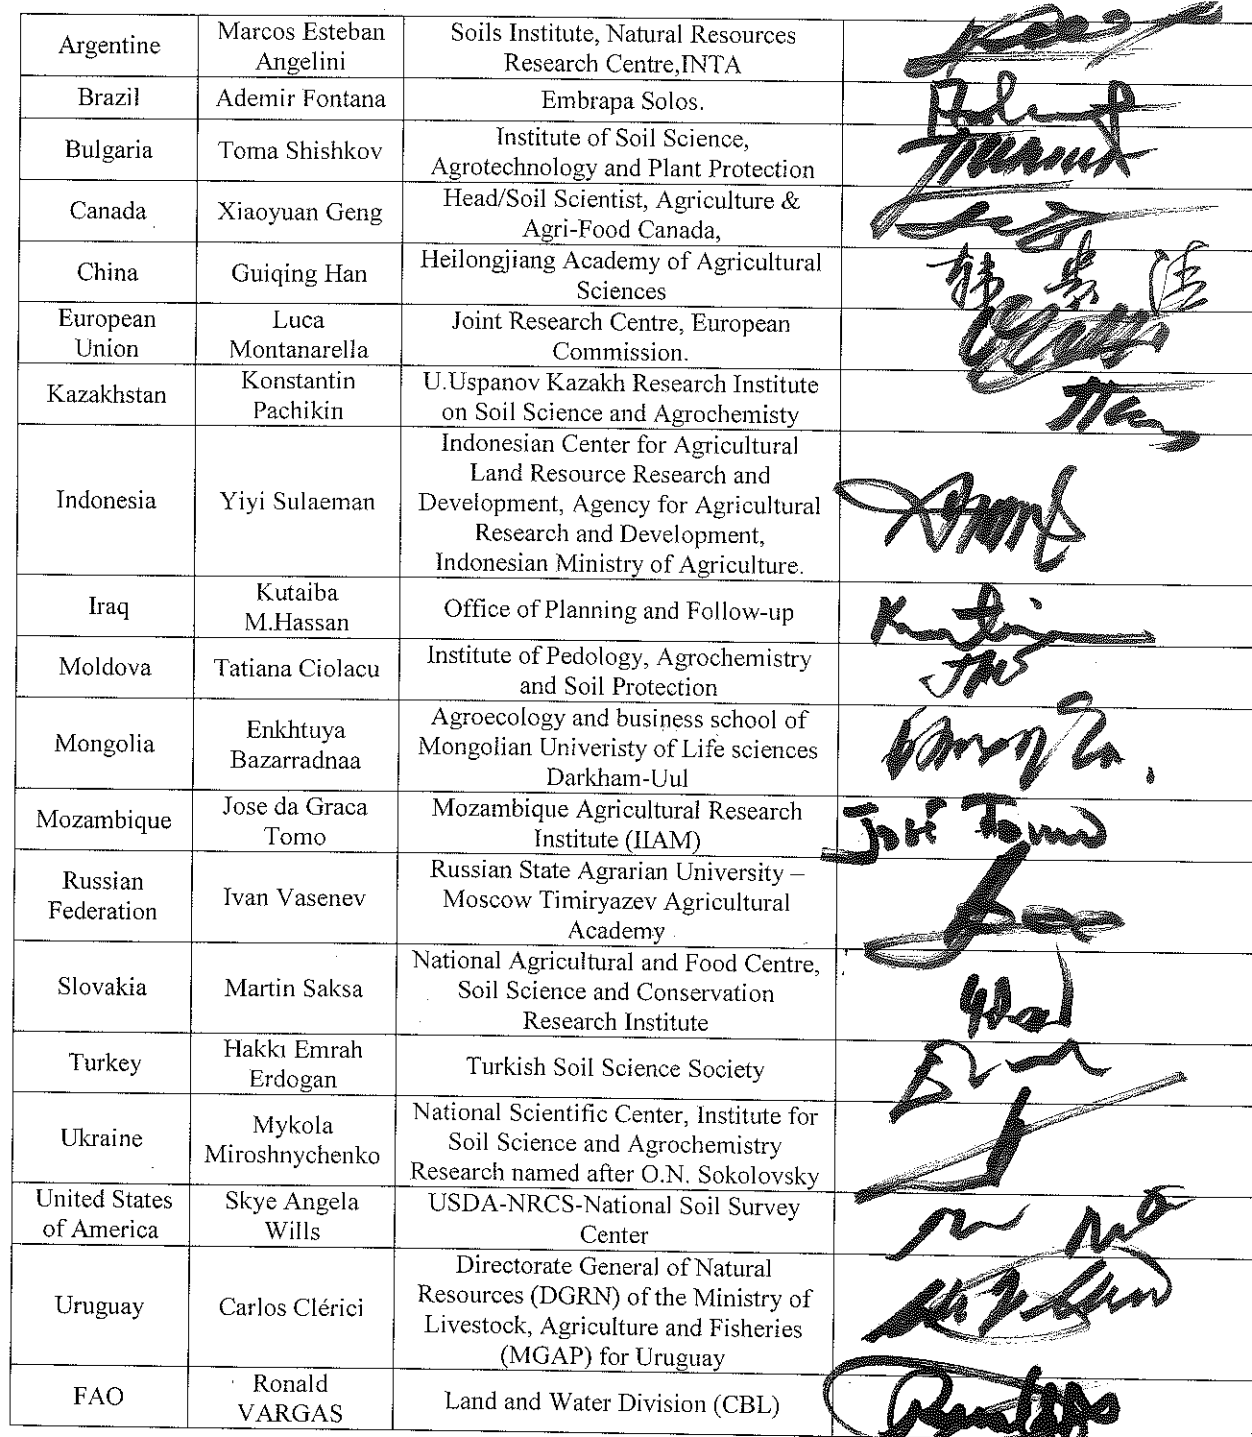 Argentine
Marcos Esteban
Angelini
Soils Institute, Natural Resources
Research Centre,INTA
Brazil
Ademir Fontana
Embrapa Solos.
Bulgaria
Toma Shishkov
Institute of Soil Science,
Agrotechnology and Plant Protection
Canada
Xiaoyuan Geng
Head/Soil Scientist, Agriculture &
Agri-Food Canada,
China
Guiqing Han
Heilongjiang Academy of Agricultural
Sciences
韩贵清
European
Union
Luca
Montanarella
Joint Research Centre, European
Commission.
Kazakhstan
Konstantin
Pachikin
U.Uspanov Kazakh Research Institute
on Soil Science and Agrochemisty
Indonesia
Yiyi Sulaeman
Indonesian Center for Agricultural
Land Resource Research and
Development, Agency for Agricultural
Research and Development,
Indonesian Ministry of Agriculture.
Iraq
Kutaiba
M.Hassan
Office of Planning and Follow-up
Moldova
Tatiana Ciolacu
Institute of Pedology, Agrochemistry
and Soil Protection
Mongolia
Enkhtuya
Bazarradnaa
Agroecology and business school of
Mongolian Univeristy of Life sciences
Darkham-Uul
Mozambique
Jose da Graca
Tomo
Mozambique Agricultural Research
Institute (IIAM)
José Tomo
Russian
Federation
Ivan Vasenev
Russian State Agrarian University –
Moscow Timiryazev Agricultural
Academy
Slovakia
Martin Saksa
National Agricultural and Food Centre,
Soil Science and Conservation
Research Institute
Turkey
Hakkı Emrah
Erdogan
Turkish Soil Science Society
Ukraine
Mykola
Miroshnychenko
National Scientific Center, Institute for
Soil Science and Agrochemistry
Research named after O.N. Sokolovsky
United States
of America
Skye Angela
Wills
USDA-NRCS-National Soil Survey
Center
Uruguay
Carlos Clérici
Directorate General of Natural
Resources (DGRN) of the Ministry of
Livestock, Agriculture and Fisheries
(MGAP) for Uruguay
FAO
Ronald
VARGAS
Land and Water Division (CBL)